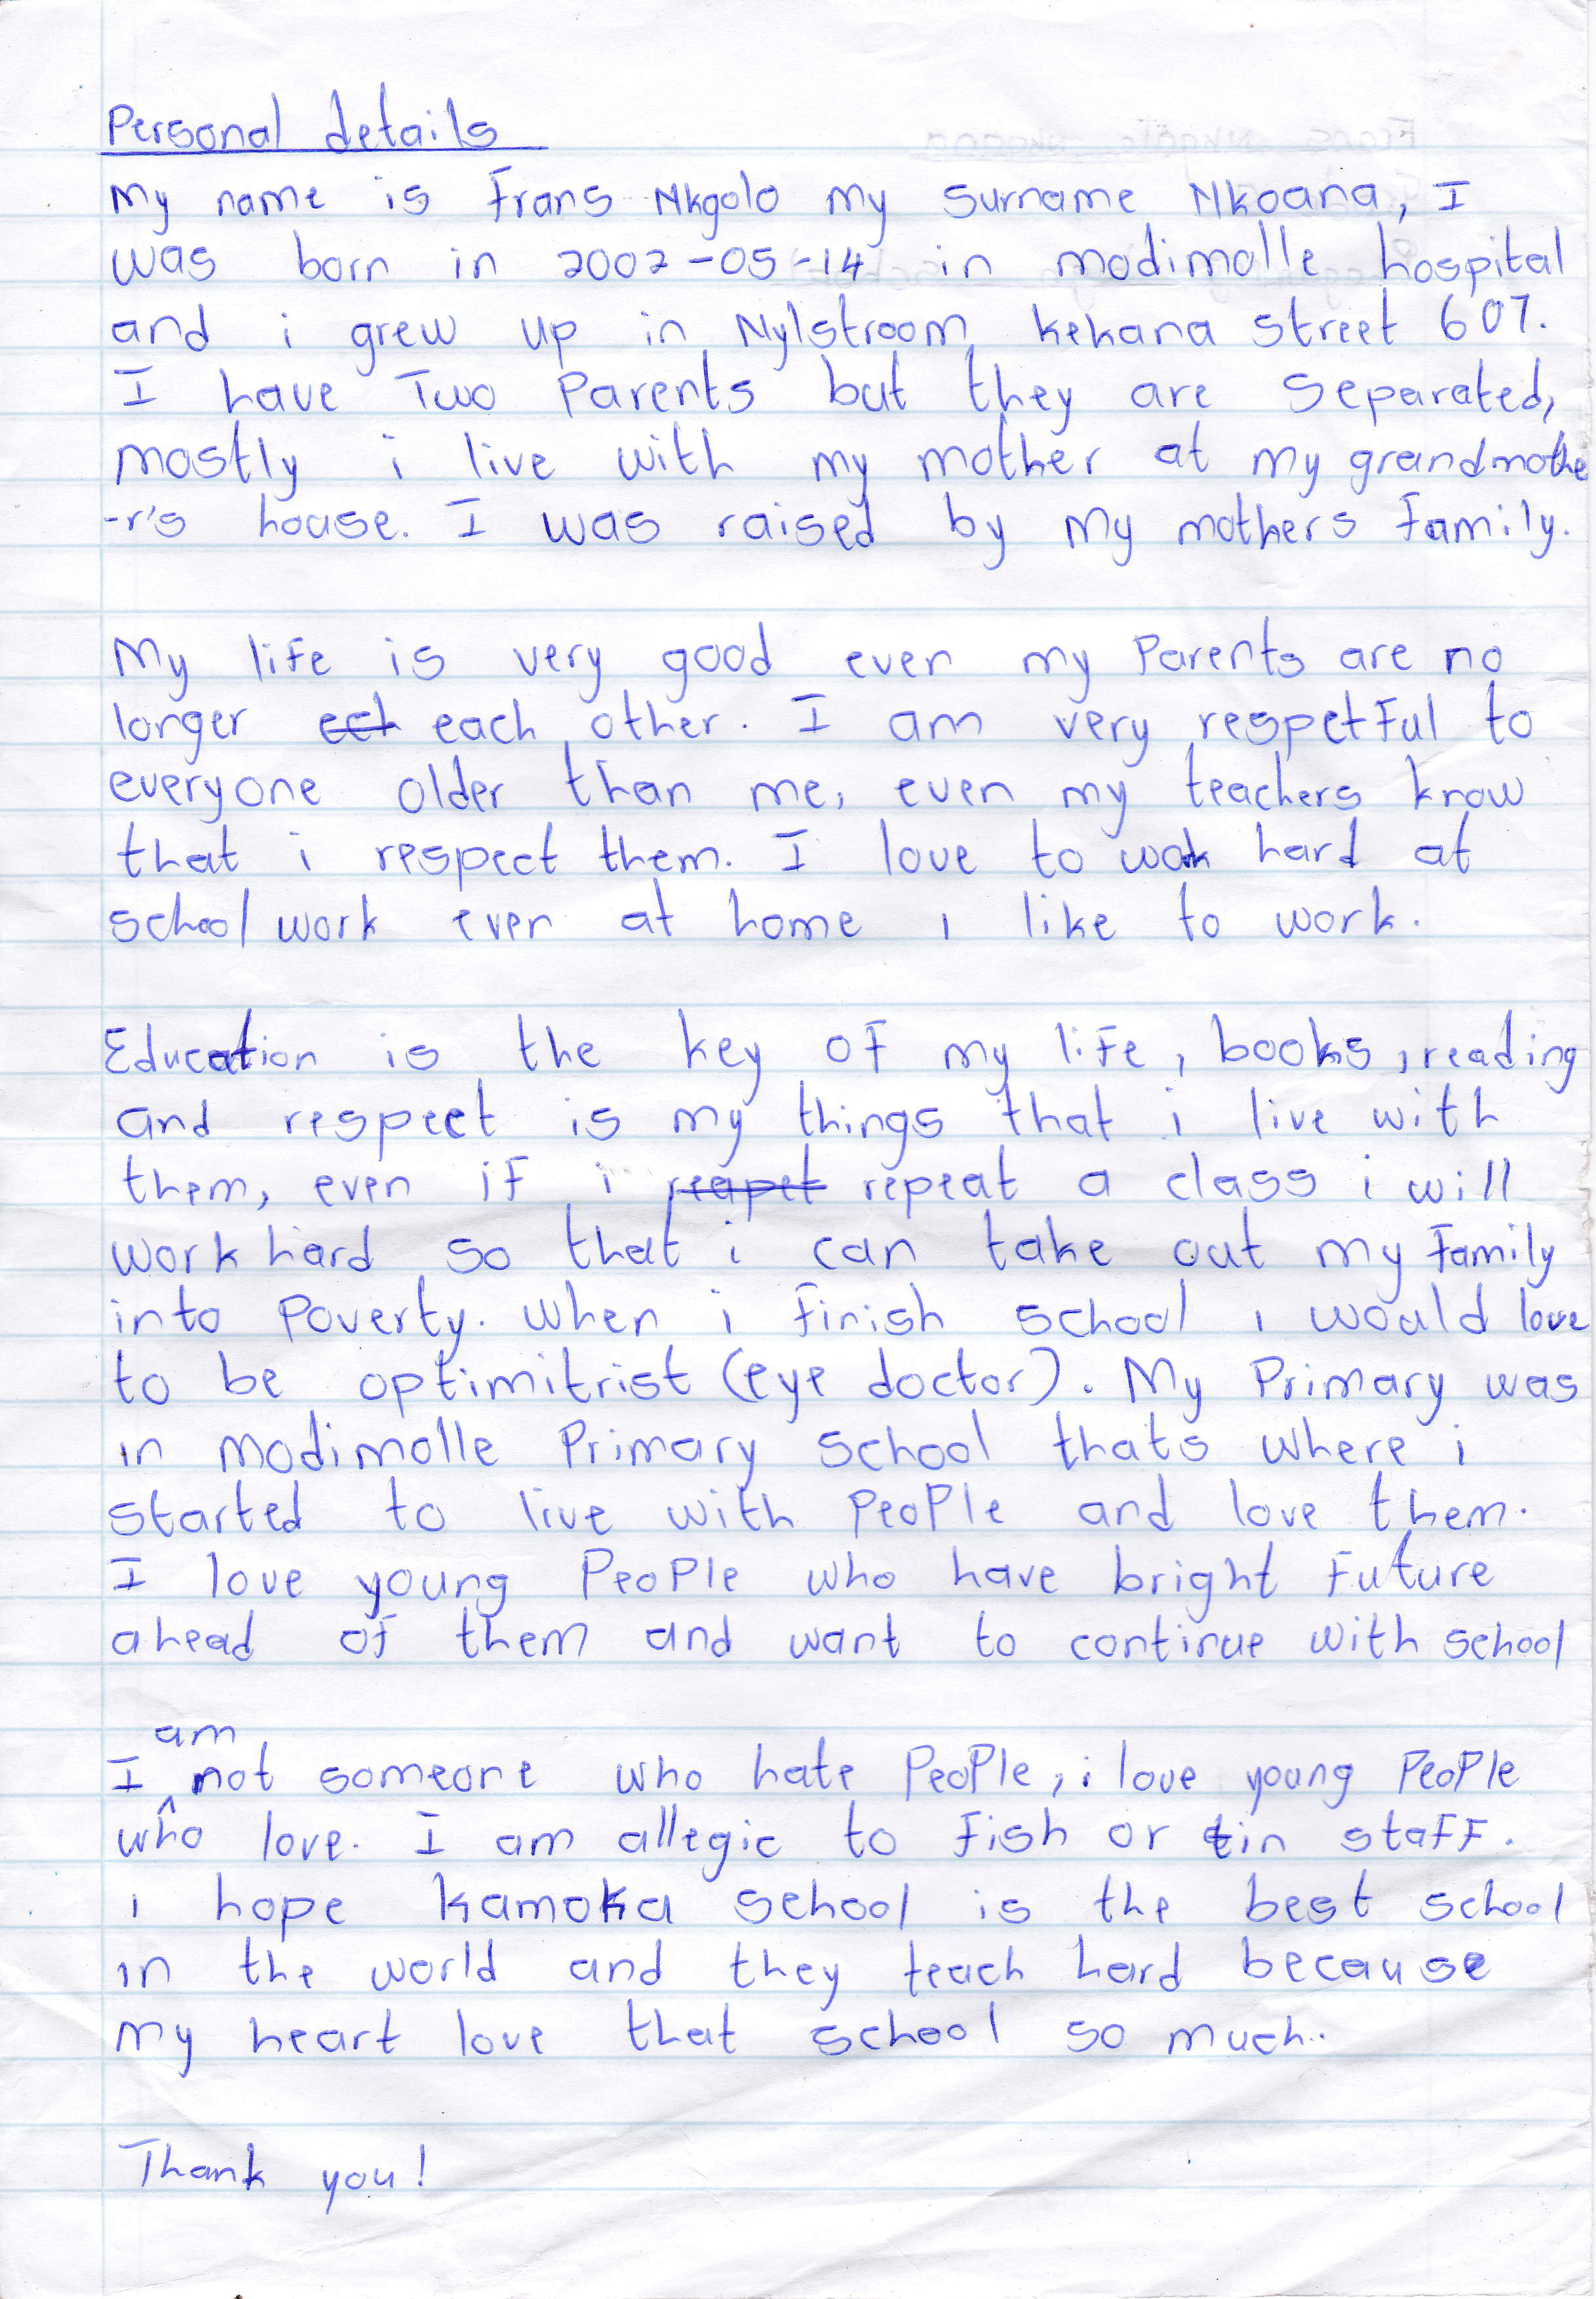 Personal details
My name is Frans Nkgolo my surname Nkoana, I
was born in 2002-05-14 in modimolle hospital
and i grew up in Nylstroom kekana street 607.
I have Two Parents but they are separated,
mostly i live with my mother at my grandmothe
-r's house. I was raised by my mothers Family.
My life is very good even my Parents are no
longer ect each other. I am very respetful to
everyone older than me, even my teachers know
that i respect them. I love to work hard at
school work even at home i like to work.
Education is the key of my life, books, reading
and respect is my things that i live with
them, even if i reapet repeat a class i will
work hard so that i can take out my Family
into Poverty. When i finish school i would love
to be optimitrist (eye doctor). My Primary was
in Modimolle Primary school thats where i
started to live with PeoPle and love them.
I love young PeoPle who have bright future
ahead of them and want to continue with school
I am not someone who hate PeoPle, i love young PeoPle
who love. I am allegic to fish or tin staff.
i hope kamoka school is the best school
in the world and they teach hard because
my heart love that school so much..
Thank you!